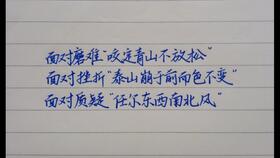 面对磨难“咬定青山不放松”
面对挫折“泰山崩于前而色不变”
面对质疑“任尔东西南北风”